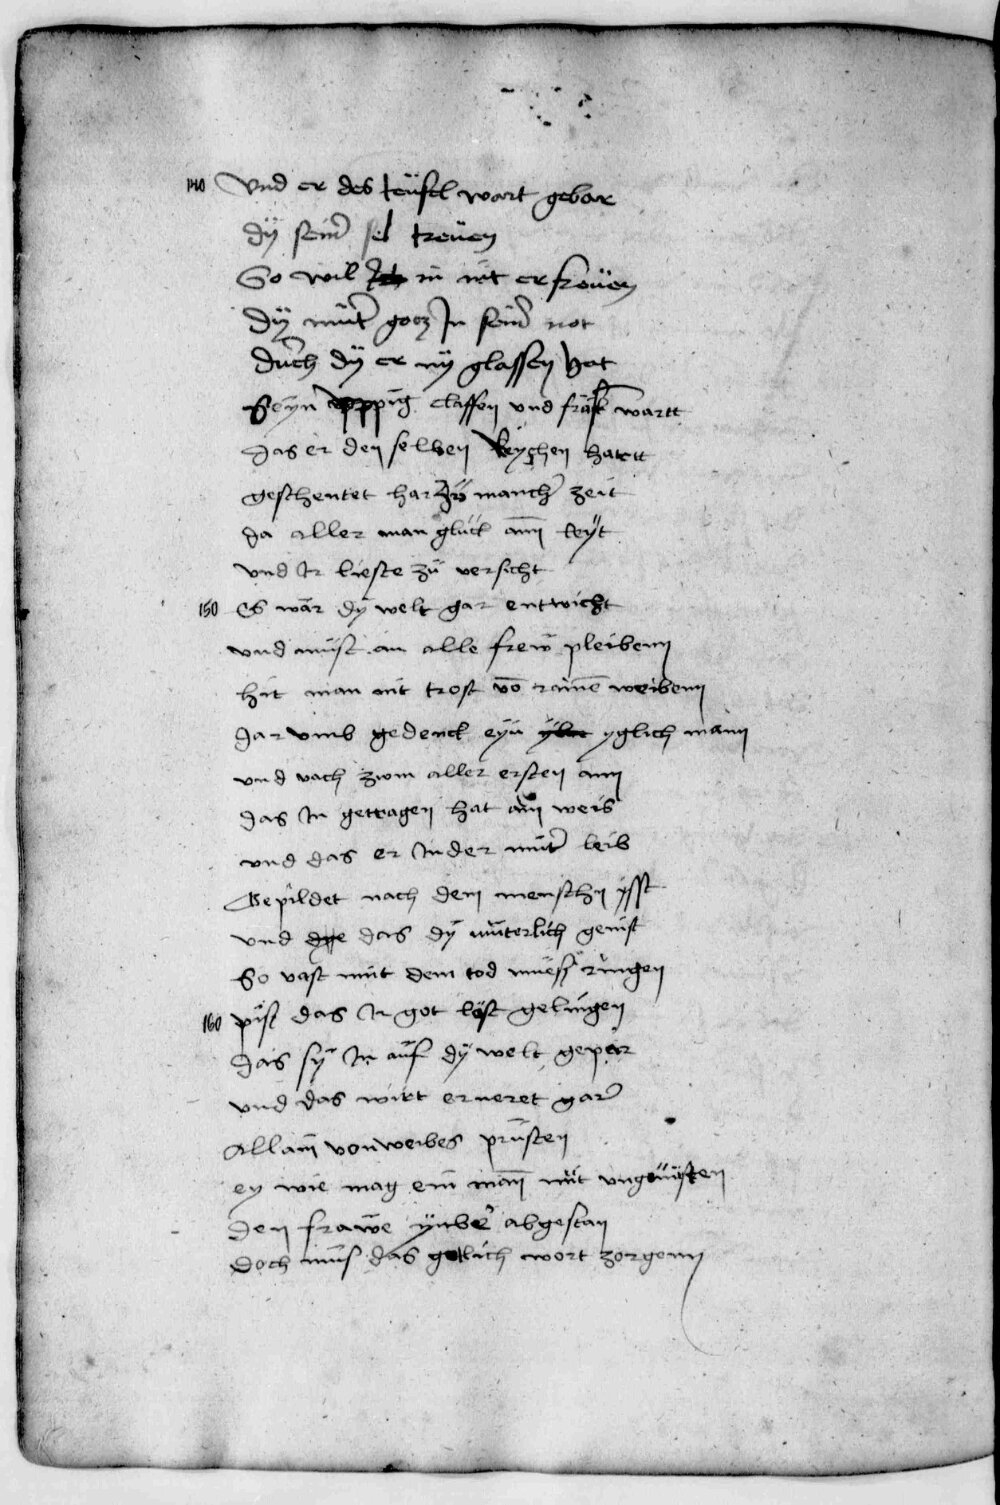 140 Vnd er des teüfel wart gebar
dÿ seinr sel treüen
So wil in nit erfreüen
Dÿ mutr gocz In seinr not
durch dÿ er nÿ glassen hat
Seyn vppig claffen vnd wartt
das er den selben hatt
geschentet har zu manchr zeit
da aller man glück ann leÿt
vnd Ir lieste zu versicht
150 Es wär dÿ welt gar entwicht
vnd müst an alle frew pleibenn
hit man nit trost vo rainē weibenn
dar vmb gedenck eyn yglich mann
vnd vach zwm aller ersten ann
das In getragen hat ain weib
vnd das er In der mutr leib
Gepildet nach dem menschn ÿsst
vnd das dÿ müterlich genist
So vast mit dem tod muess ringen
160 pist das Ir got löst gelingen
das sÿ In auf dÿ welt geper
vnd das wirt erneret gar
Allain von weibes prüsten
ey wie mag ein man mit
den frawe abgestan
doch mus das gotlich wort zorgenn